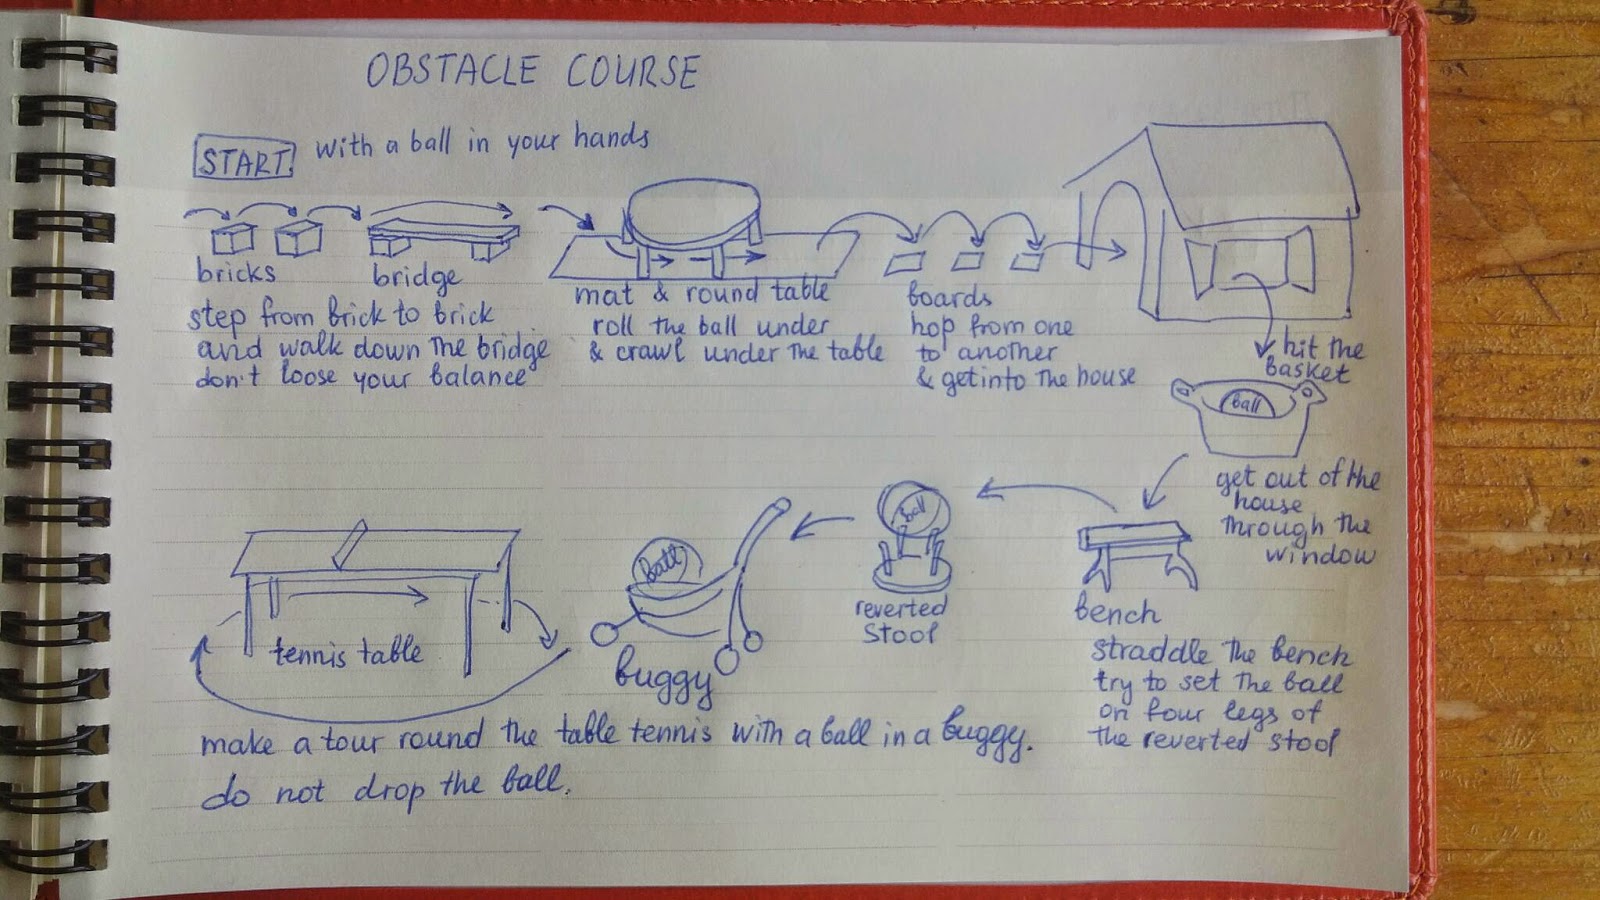 OBSTACLE COURSE
START. with a ball in your hands
bricks
bridge
step from brick to brick
and walk down the bridge
don't loose your balance
mat & round table
roll the ball under
& crawl under the table
boards
hop from one
to another
& get into the house
hit the
basket
ball
get out of the
house
through the
window
bench
straddle the bench
try to set the ball
on four legs of
the reverted stool
ball
reverted
stool
ball
buggy
tennis table
make a tour round the table tennis with a ball in a buggy.
do not drop the ball.